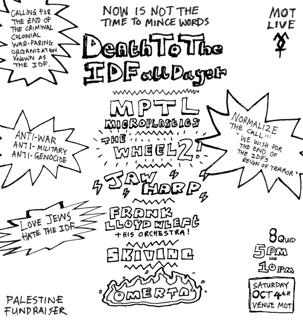 CALLING FOR
THE END OF
THE CRIMINAL
COLONIAL
WAR-FARING
ORGANIZATION
KNOWN AS
THE IDF.
NOW IS NOT THE
TIME TO MINCE WORDS
MOT
LIVE
Death To The
IDF all Dayer
MPTL
MICROPLASTICS
THE
WHEEL2
JAW
HARP
FRANK
LLOYD WLEFT
+ HIS ORCHESTRA!
SKIVING
OMERTA
ANTI-WAR
ANTI-MILITARY
ANTI-GENOCIDE
NORMALIZE
THE CALL...
"WE WISH FOR
THE END OF
THE IDF'S
REIGN OF TERROR"
LOVE JEWS
HATE THE IDF
8 QUID
5PM
-
10PM
SATURDAY
OCT 4TH
VENUE MOT
PALESTINE
FUNDRAISER